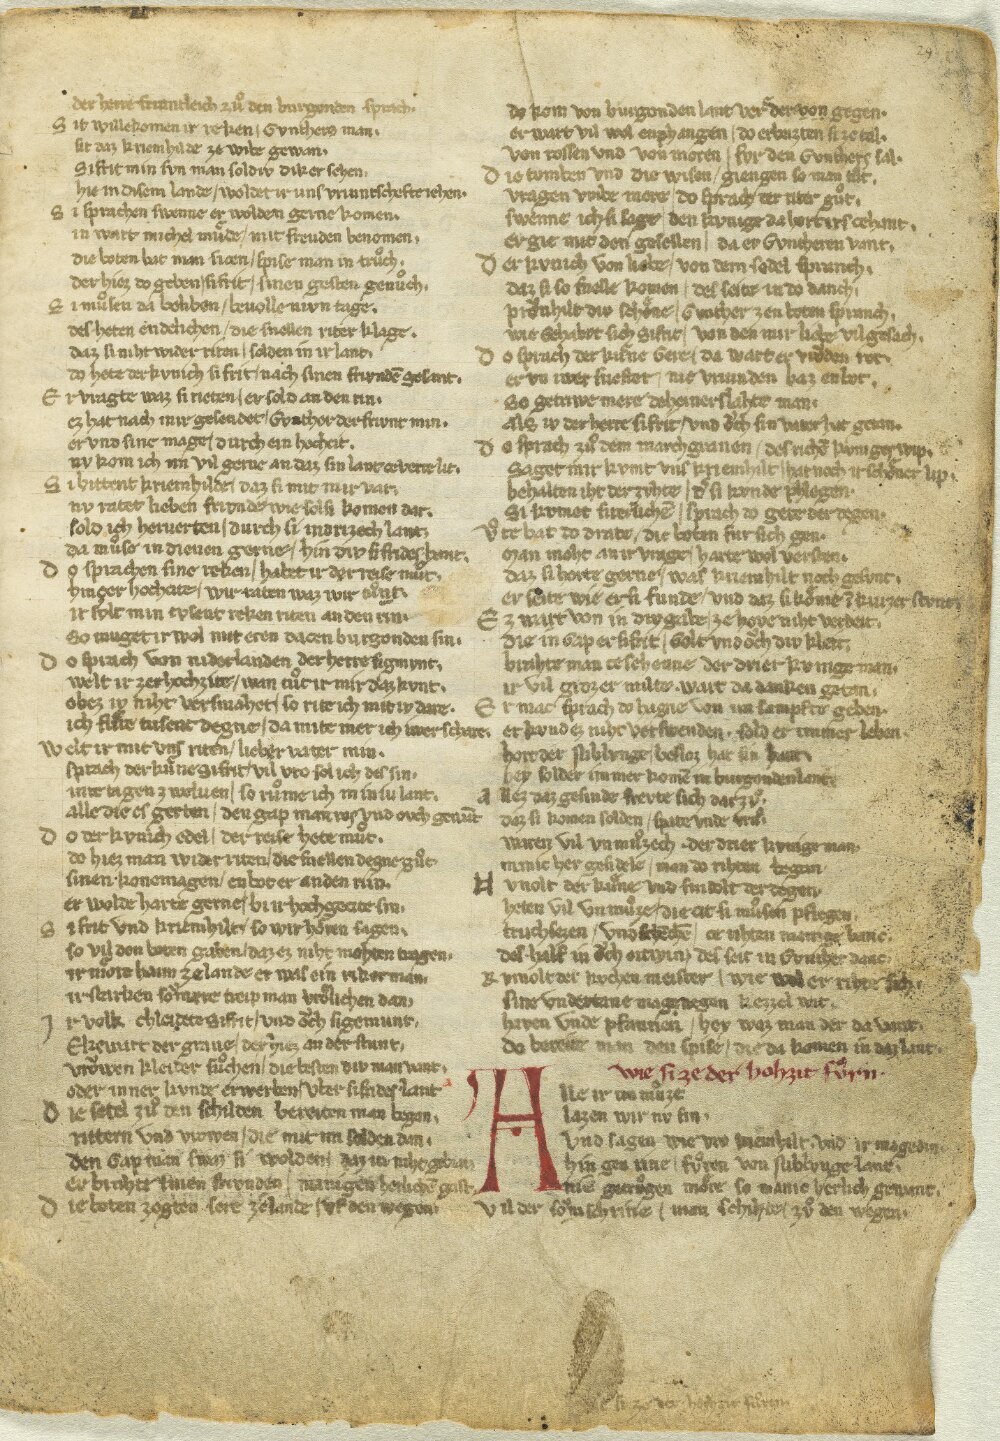 der herre friuntleich zuͦ den burgenden sprach.
S it willekomen ir reken / Gvnthers man.
sit daz kriemhilde ze wibe gewan.
Sifrit min svn man sold iv diker sehen.
hie in disem lande / woldet ir uns vriuntschefte iehen.
S i sprachen swenne er wolden gerne komen.
in wart michel muͤde / mit freuden benomen.
die boten bat man sicen / spise man in truͦch.
der hiez do geben / sifrit / sinen gesten genuͦch.
S i muͦsen da beliben / bevolle nivn tage.
des heten endelichen / die snellen riter klage.
daz si niht wider riten / solden in ir lant.
do hete der kvnich sifrit / nach sinen frivndē gesant.
E r vragte waz si rieten / er sold an den rin.
ez hat nach mir gesendet / Gvnther der frivnt min.
er vnd sine mage / durch ein hocheit.
nv kom ich im vil gerne an daz sin lant ce verre lit.
S i bittent kriemhilde / daz si mit mir var.
nv ratet lieben frivnde / wie sol si komen dar.
sold ich herverten / durch si in drizech lant.
da muͦse in dienen gerne / hin div sifrides hant.
D o sprachen sine reken / habet ir der reise muͦt.
hin cer hochcite / wir raten waz wir
ir svlt min tvsent reken riten an den rin.
So muget ir wol mit eren da cen burgonden sin.
D o sprach von niderlanden der herre sigmvnt.
welt ir zer hochzite / wan tuͦt ir mir daz kvnt.
obez iv niht versmahet / so rite ich mit iv dare.
ich fuͤre tusent degne / da mite mer ich iwer schare.
W elt ir mit vns riten / lieber vater min.
sprach der kuͤne Sifrit / vil vro sol ich des sin.
inre tagen zwelven / so ruͦme ich min lant.
alle die es gerten / den gap man ros vnd ovch gewāt
D o der kvnich edel / der reise hete muͦt.
do hiez man wider riten / die snellen degne guͦt
sinen konemagen / enbot er an den rin.
er wolde harte gerne / bi ir hochgecite sin.
S ifrit vnd kriemhilt / so wir hoͤren sagen.
so vil den boten gaben / daz ez niht mohten tragen.
ir moͤre haim ze lande er was ein richer man.
ir starken soͮmere treip man vroͤlichen dan.
I r volk chleidete Sifrit / vnd oͮch sigemunt.
Ekewart der grave / der hiez an der stunt.
vroͮwen kleider suͦchen / die besten div man vant.
oder inner kvnde erwerben / vber sifrides lant
D ie setel zuͦ den schilden bereiten man began.
rittern vnd vrowen / die mit im solden dan.
den Gap man swaz si wolden / daz in niht gebrast
er brahte sinen frivnden / manigen herlichē gast.
D ie boten zogten sere ze lande / vf den wegen.
do kom von burgonden lant ver der von gegen.
er wart vil wol enphangen / do erbeizten si ze tal.
von rossen vnd von moren / fvr den Gvnthers sal.
D ie tvmben vnd die wisen / giengen so man tuͦt.
vragen vmbe mere / do sprach der riter guͦt.
swenne ich si sage / den kvnige da hort irs cehant.
er gie mit den gesellen / da er Gvntheren vant.
D er kvnich von liebe / von dem sedel spranch.
daz si so snelle komen / des seite in do danch.
prvnhilt div schoͤne / Gvnther zen boten sprach.
wie Gehabet sich Sifrit / von dem mir liebe vil gesach.
D o sprach der kuͤne Gere / da wart er vrovden rot.
er vn iwer swester / nie vriunden baz enbot.
So getriwe mere deheiner slahte man.
Als iv der herre sifrit / vnd oͮch sin vater hat getan.
D o sprach zuͦ dem marchgraven / des richē kvniges wip.
Saget mir kvmt vns kriemhilt / hat noch ir schoͤner lip.
behalten iht der zvhte / der si kvnde phlegen.
Si kvmet sicherlichē / sprach do gere der degen.
V te bat do drate / die boten fur sich gen.
Man moht an ir vrage / harte wol versten.
daz si horte gerne / was kriemhilt noch gesvnt.
er seite wie er si funde / vnd daz si koͤme ī kurzer stunt.
E z wart von in div gabe / ze hove niht verdeit.
die in Gap er sifrit / Golt vnd oͮch div kleit.
brahte man ce sehenne der drier kvnige man.
ir vil grozer milte wart da danken getan.
E r mac sprach do hagne von im sampfte geben.
er kvnd ez niht verswenden . sold er immer leben.
hort der niblvnge / besloz hat sin hant.
hey solder immer komē in burgonden lant.
A llez daz gesinde frevte sich dar zvͦ.
daz si komen solden / spate vnde vruͦ.
waren vil vnmuͦzech . der drier kvnige man
manic her gesidele / man do rihten began.
H vnolt der kuͤne vnd sindolt der degen.
heten vil vnmuͦze / die cit si muͦsen pflegen.
truchsezen / vnd schēchē / ce rihten manige banc.
des half in oͮch ortwin / des seit in Gvnther danc.
R vmolt der kvchen meister / wie wol er rihte sich.
sine vndertane maginegen kezzel wit.
haven vnde pfannen / hey waz man der da vant.
do bereite man den spise / die da komen in daz lant.
wie si ze der hohzit fvͦrn.
A lle ir vnmuͦze
lazen wir nv sin.
Vnd sagen wie vro kriemhilt / vnd ir magedin.
hin gen rine / fvͦren von niblvnge lant.
nie getruͦgen moͤre so manic herlich gewant.
V il der soͮmschrine / man schihte / zvͦ den wegen.
wie si ze der hohzit fuͦren